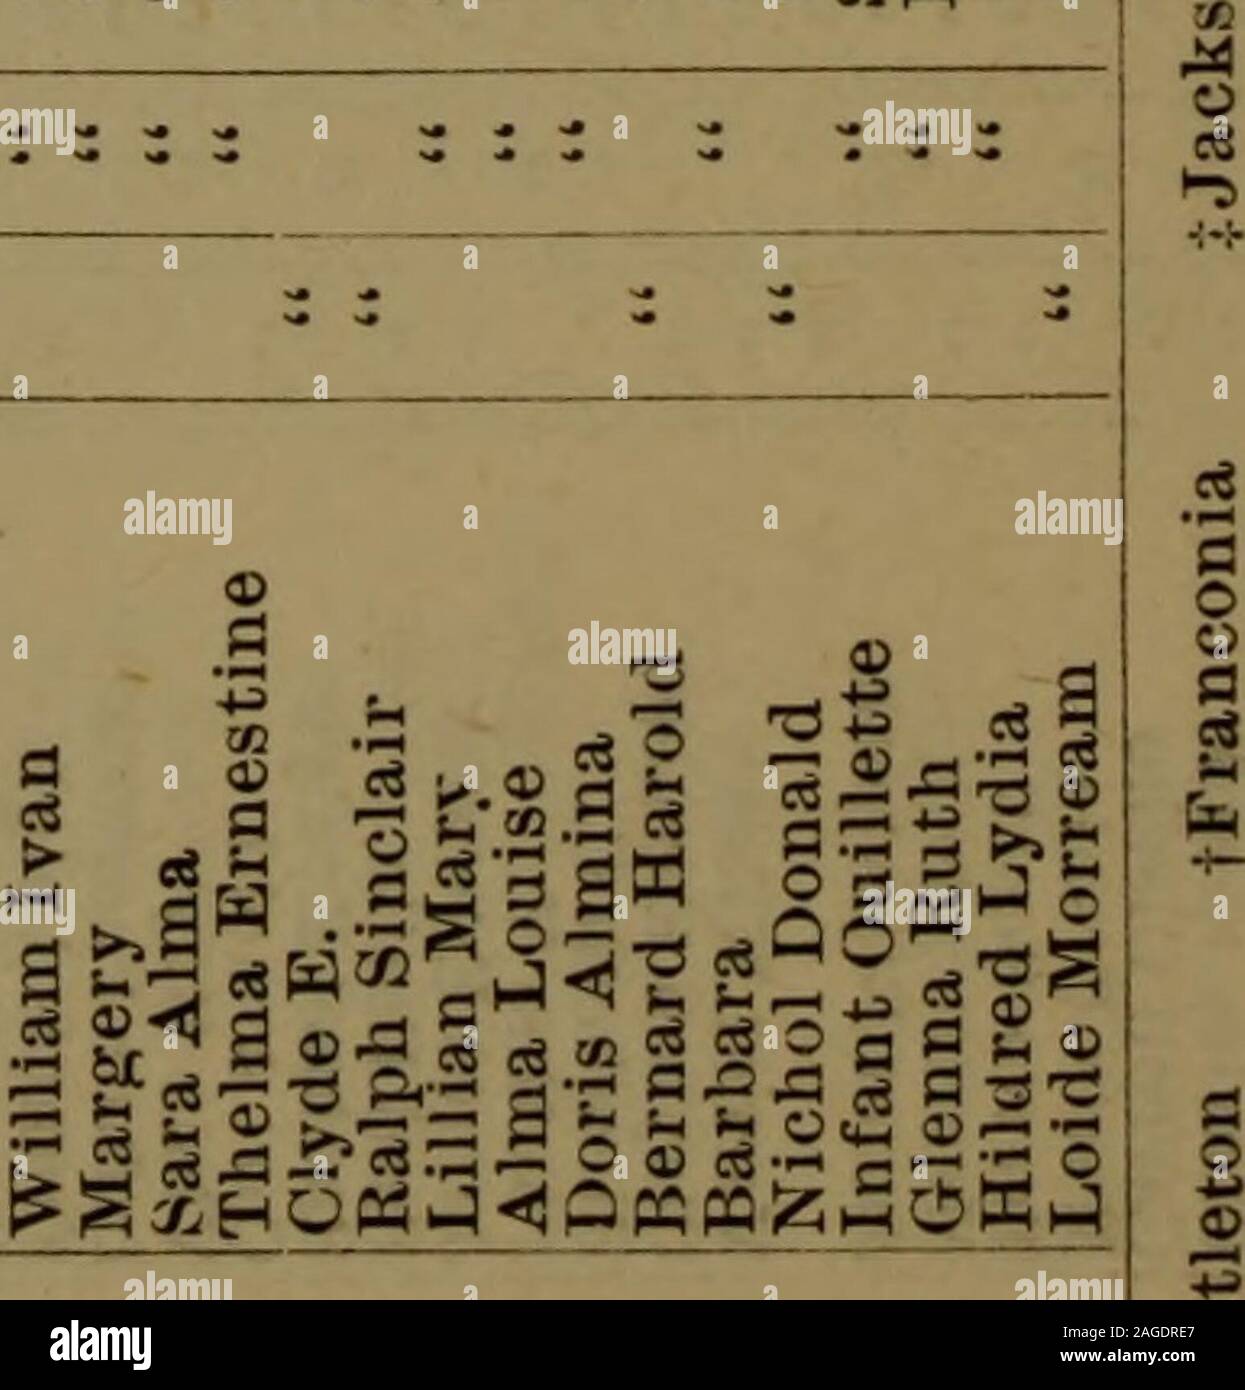 William Ivan "
Margery "
Sara Alma "
Thelma Ernestine "
Clyde E. "
Ralph Sinclair "
Lillian Mary "
Alma Louise "
Doris Almina "
Bernard Harold "
Barbara "
Nichol Donald "
Infant Ouillette "
Glenna Ruth "
Hildred Lydia "
Loide Morream "
tleton †Franconia ‡Jacks
alamy
Image ID: 2AGDRE7
www.alamy.com